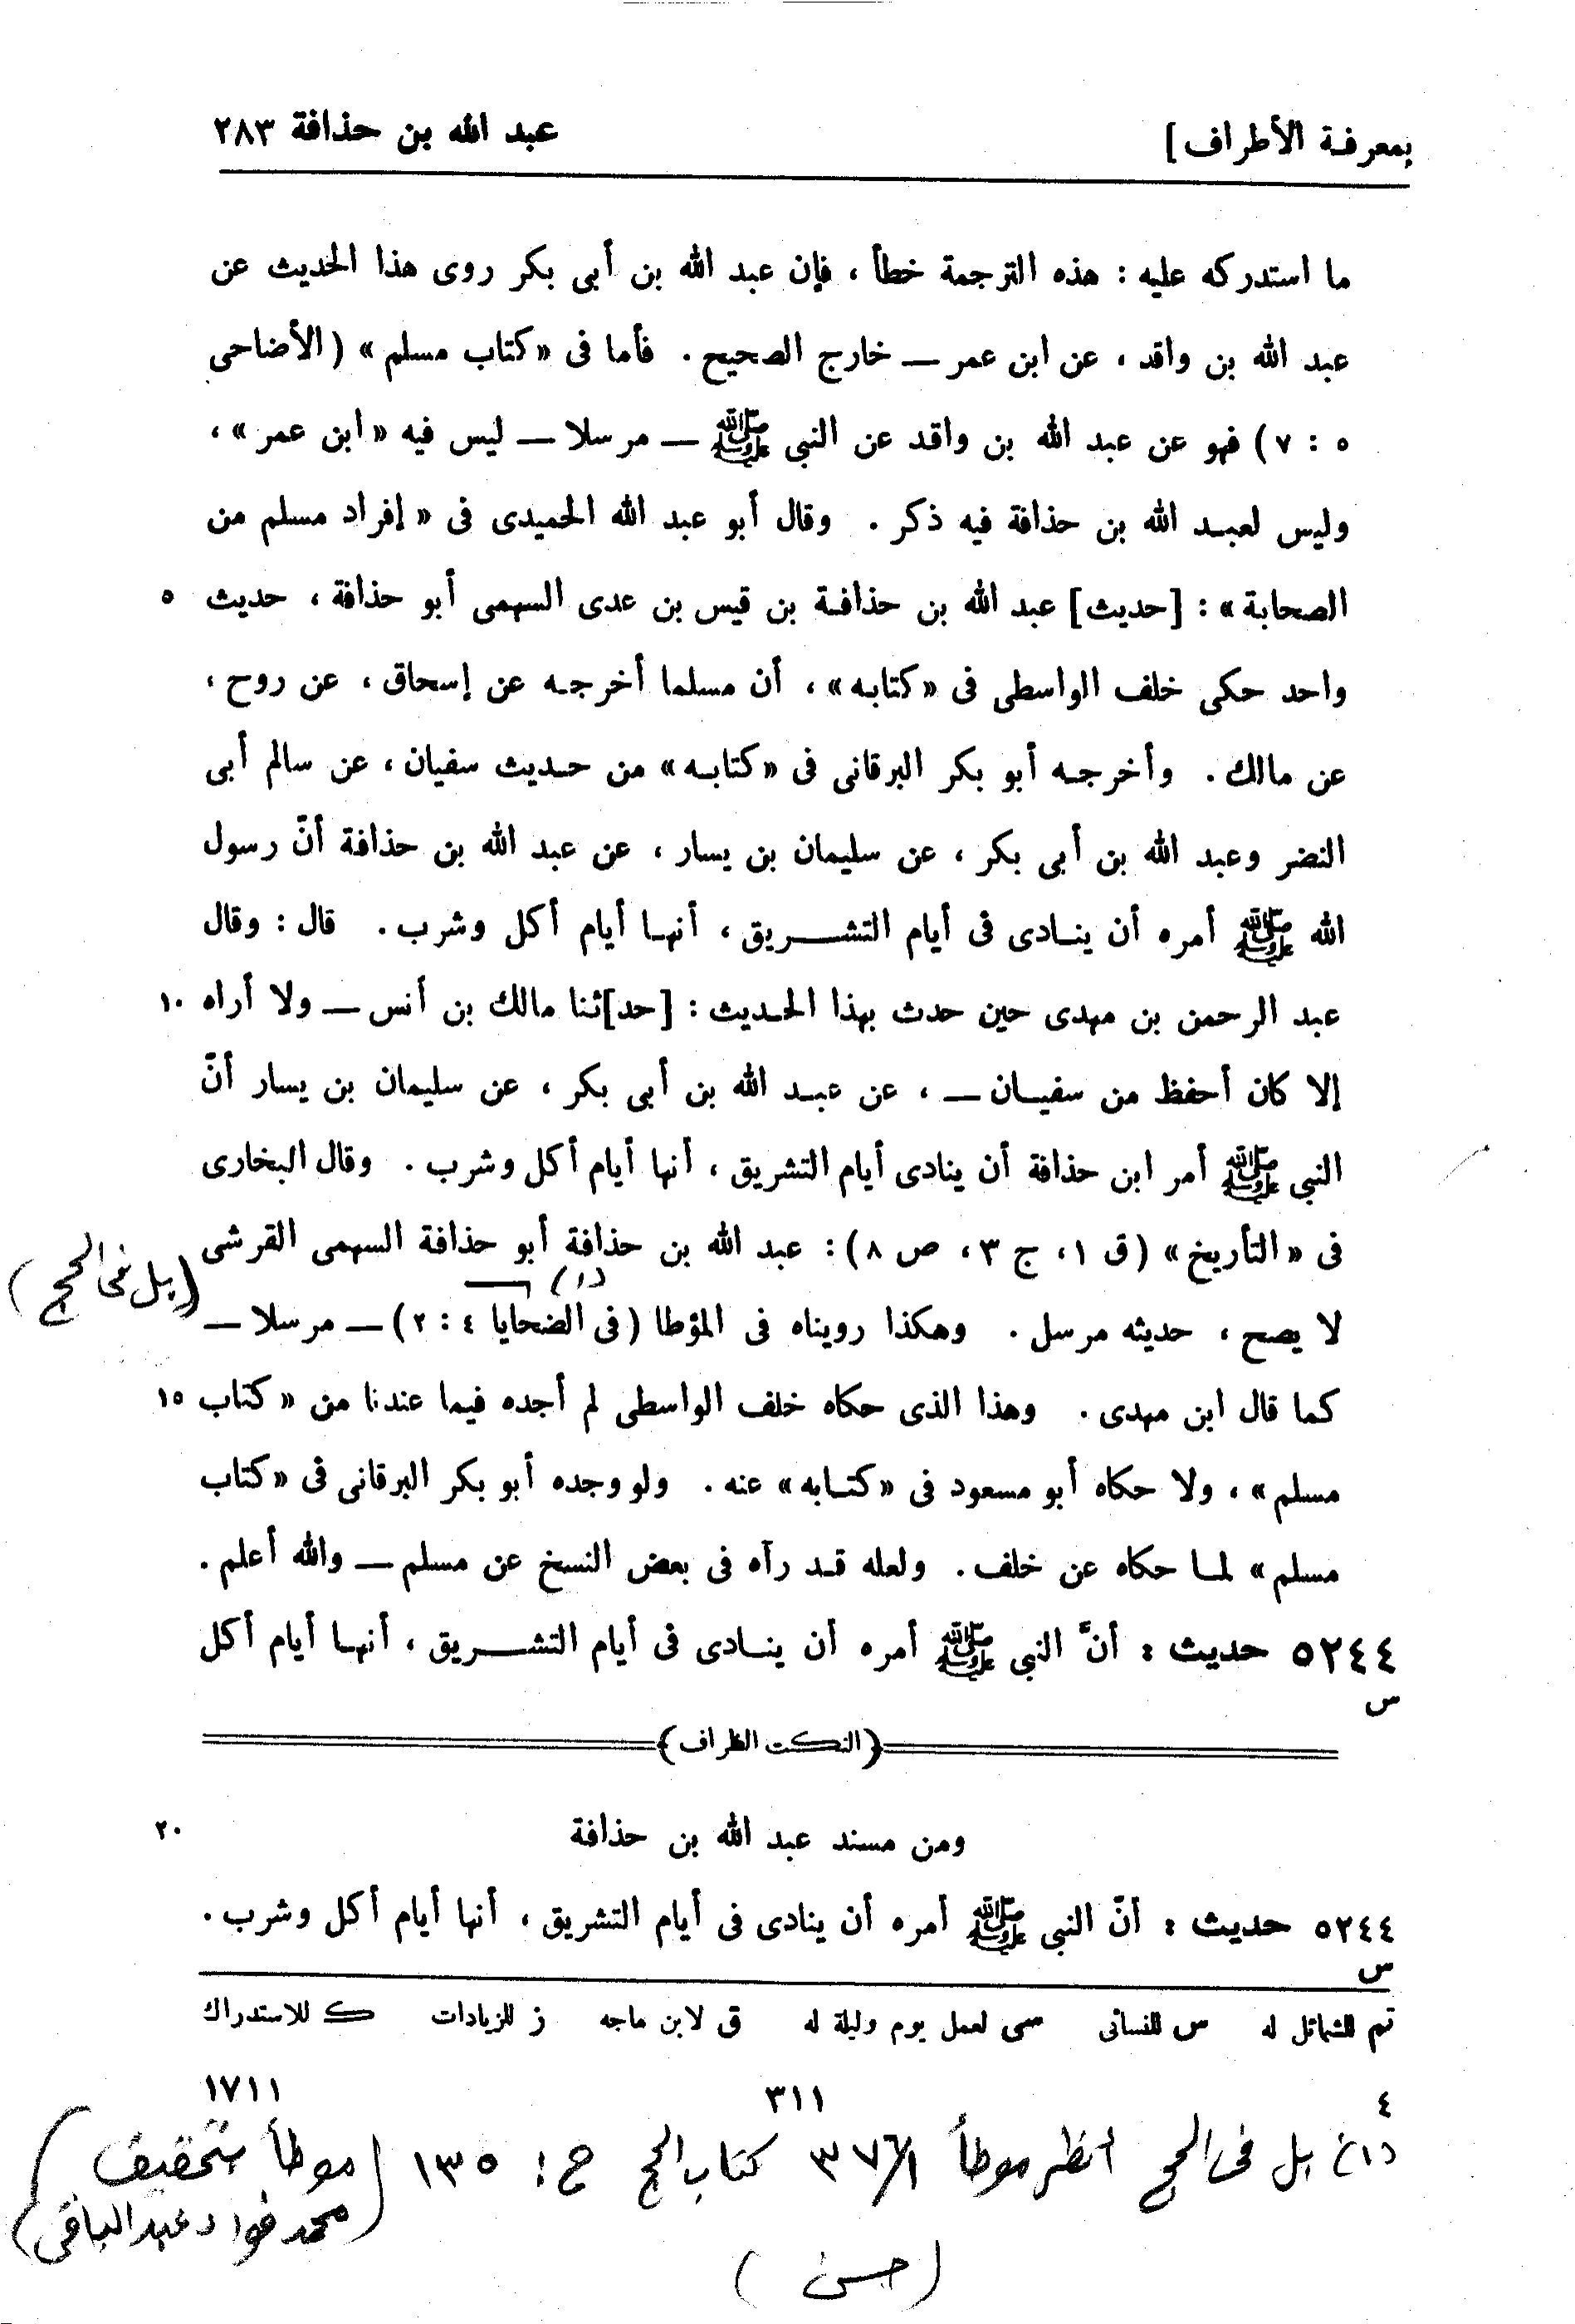 بمعرفة الأطراف] عبد الله بن حذافة ٢٨٣
ما استدركه عليه : هذه الترجمة خطأ ، فإن عبد الله بن أبى بكر روى هذا الحديث عن
عبد الله بن واقد ، عن ابن عمر — خارج الصحيح . فأما فى «كتاب مسلم» (الأضاحى
٥ : ٧) فهو عن عبد الله بن واقد عن النبى ﷺ — مرسلا — ليس فيه «ابن عمر» ،
وليس لعبد الله بن حذافة فيه ذكر . وقال أبو عبد الله الحميدى فى «إفراد مسلم من
الصحابة» : [حديث] عبد الله بن حذافة بن قيس بن عدى السهمى أبو حذافة ، حديث ٥
واحد حكى خلف الواسطى فى «كتابه» ، أن مسلما أخرجه عن إسحاق ، عن روح ،
عن مالك . وأخرجه أبو بكر البرقانى فى «كتابه» من حديث سفيان ، عن سالم أبى
النضر وعبد الله بن أبى بكر ، عن سليمان بن يسار ، عن عبد الله بن حذافة أنّ رسول
الله ﷺ أمره أن ينادى فى أيام التشريق ، أنها أيام أكل وشرب . قال : وقال
عبد الرحمن بن مهدى حين حدث بهذا الحديث : [حد]ثنا مالك بن أنس — ولا أراه ١٠
إلا كان أحفظ من سفيان — ، عن عبد الله بن أبى بكر ، عن سليمان بن يسار أنّ
النبى ﷺ أمر ابن حذافة أن ينادى أيام التشريق ، أنها أيام أكل وشرب . وقال البخارى
فى «التأريخ» (ق ١ ، ج ٣ ، ص ٨) : عبد الله بن حذافة أبو حذافة السهمى القرشى
(بل فى الحج)
(١)
لا يصح ، حديثه مرسل . وهكذا رويناه فى المؤطا (فى الضحايا ٤ : ٢) — مرسلا —
كما قال ابن مهدى . وهذا الذى حكاه خلف الواسطى لم أجده فيما عندنا من «كتاب ١٥
مسلم» ، ولا حكاه أبو مسعود فى «كتابه» عنه . ولو وجده أبو بكر البرقانى فى «كتاب
مسلم» لما حكاه عن خلف . ولعله قد رآه فى بعض النسخ عن مسلم — والله أعلم .
٥٢٤٤ حديث : أنَّ النبى ﷺ أمره أن ينادى فى أيام التشريق ، أنها أيام أكل
س
﴿النكت الظراف﴾
ومن مسند عبد الله بن حذافة ٢٠
٥٢٤٤ حديث : أنّ النبى ﷺ أمره أن ينادى فى أيام التشريق ، أنها أيام أكل وشرب .
س
تم للشمائل له س للنسائى سى لعمل يوم وليلة له ق لابن ماجه ز للزيادات ك للاستدراك
٤ ٣١١ ١٧١١
(١) بل فى الحج انظر موطأ ٣٧٦/١ كتاب الحج ح : ١٣٥ (موطأ بتحقيق
محمد فواد عبد الباقى)
(حسن)